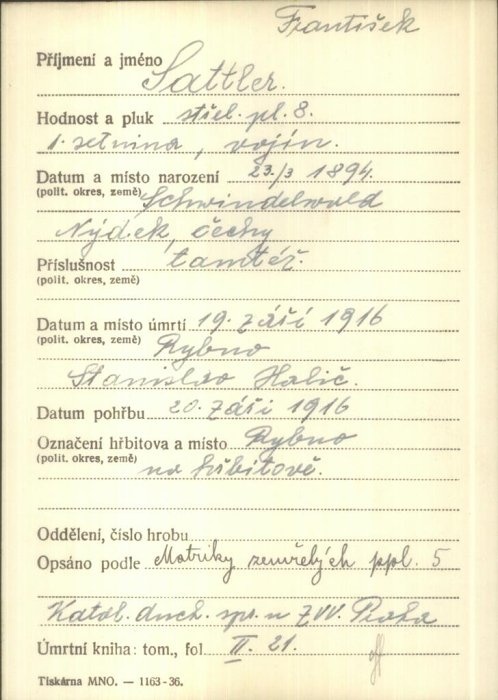 František
Příjmení a jméno Sattler.
Hodnost a pluk střel. pl. 8.
1. setnina, vojín.
Datum a místo narození 23./3 1894.
(polit. okres, země) Schwindelwald
Nýdek, Čechy
Příslušnost tamtéž.
(polit. okres, země)
Datum a místo úmrtí 19. září 1916
(polit. okres, země) Rybno
Stanislav Halič.
Datum pohřbu 20. září 1916
Označení hřbitova a místo Rybno
(polit. okres, země) na hřbitově.
Oddělení, číslo hrobu
Opsáno podle Matriky zemřelých ppl. 5
Katol. duch. spr. u ZVV. Praha
Úmrtní kniha: tom., fol II. 21.
Tiskárna MNO. — 1163-36.